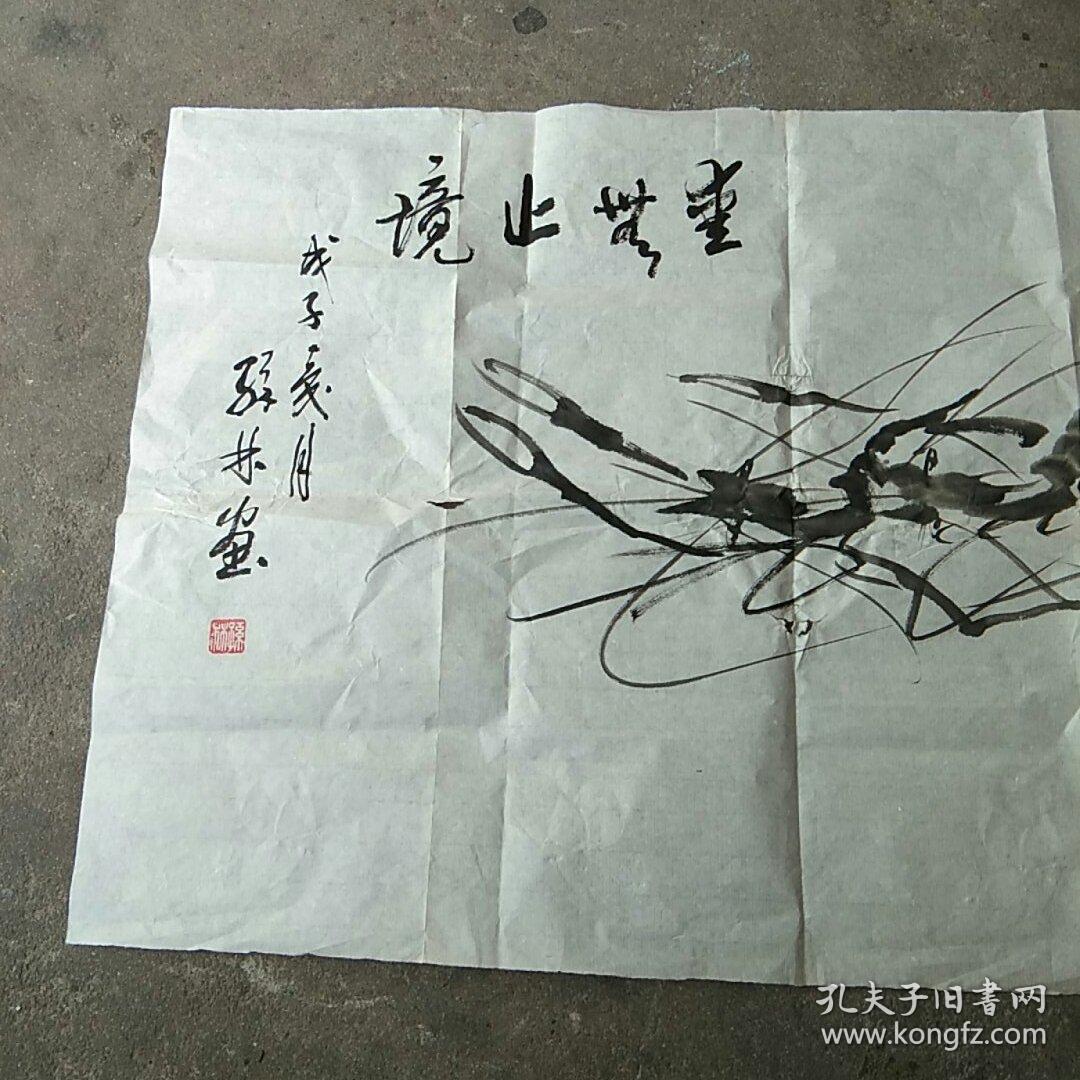 無止境
戊子夏月
孫林畫
孫林
孔夫子旧書网
www.kongfz.com